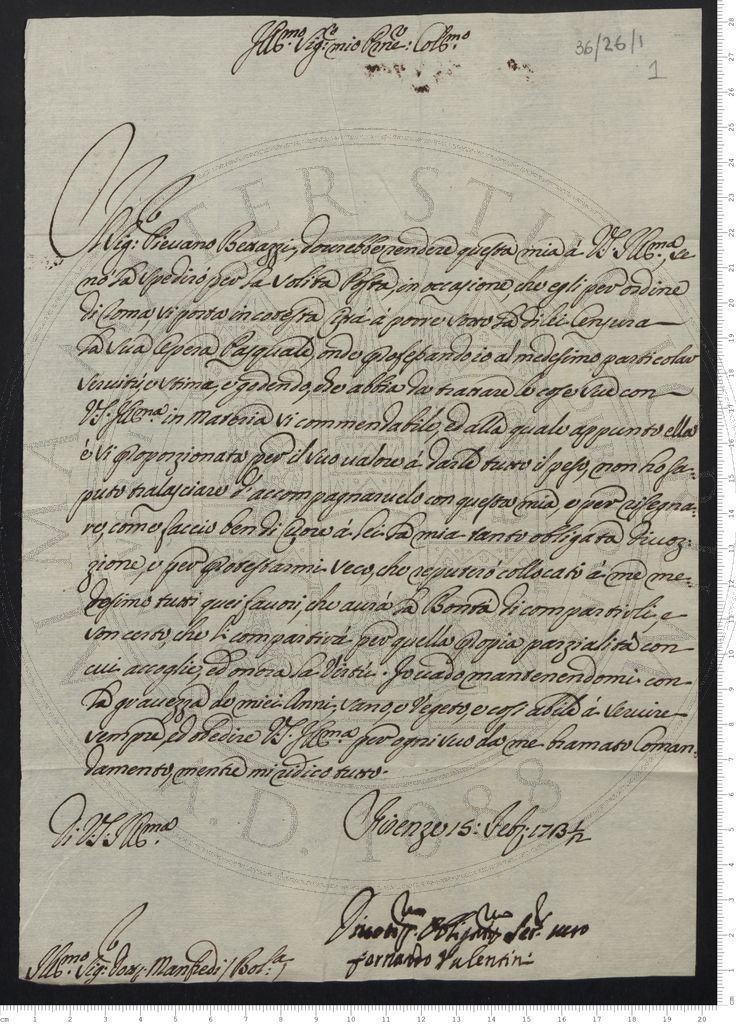 Ill.mo Sig.re mio P'ne: Col.mo
36/26/1
1
Il Sig.e Pievano Betazzi, dovrebbe rendere questa mia á V.S. Ill.ma, se
nó la spediró per la solita Posta, in occasione, che egli per ordine
di Roma, si porta in cotesta Cittá á porre sotto la di lei Censura
la sua Opera Pasquale, onde professando io al medesimo particolar
servitú e stima, e godendo, che abbia da trattare le cose sue con
V.S. Ill.ma in materia sí commendabile, ed alla quale appunto ella
é sí proporzionata per il suo valore á darle tutto il peso, non ho sa-
puto tralasciare d'accompagnarvelo con questa mia, e per rasegna-
re, come faccio ben di Cuore á lei la mia tanto obligata divoz-
zione, e per protestarmi seco, che reputeró collocati á me me-
desimo tutti quei favori, che avrá la Bontá di compartirli, e
son certo, che li compartirá per quella propia parzialitá con
cui accoglie, ed onora la Virtú. Io vado mantenendomi con
la gravezza de miei Anni, sano, e vegeto, e cosí abile á servire
sempre, ed obedire V.S. Ill.ma per ogni suo da me bramato Coman-
damento, mentre mi ridico tutto.
Di V.S. Ill.ma
Firenze 15: Feb: 1713/12
Divotiss.mo Obligatiss.mo Ser.e vero
Fernando Valentin:
Ill.mo Sig.e Dott.e Manfredi / Bol.a
INTER STU
A.D. 1088
cm 1 2 3 4 5 6 7 8 9 10 11 12 13 14 15 16 17 18 19 20